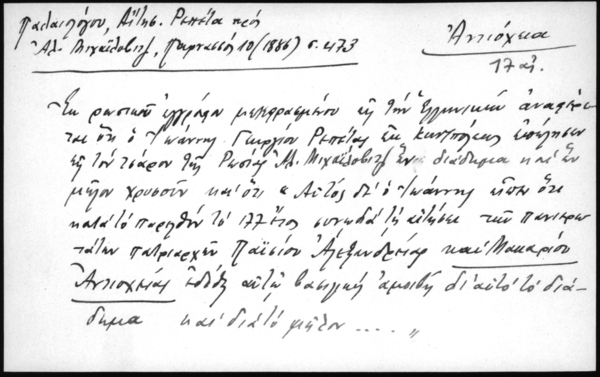 Παλαιολόγου, Αἴτησ. Ρεπέτα πρὸς
Ἀλ. Μιχαϊλοβιτζ, Παρνασσός 10 (1886) σ. 473
Ἀντιόχεια
17 αἰ.
Ἐκ ρωσικοῦ ἐγγράφου μεταφρασμένου εἰς τὴν Ἑλληνικὴν ἀναφέρε-
ται ὅτι ὁ Ἰωάννης Γεωργίου Ρεπέτας ἐκ Κων/πόλεως ἐπώλησεν
εἰς τὸν τσάρον τῆς Ρωσίας Ἀλ. Μιχαϊλοβιτζ ἕνα διάδημα καὶ ἓν
μῆλον χρυσοῦν καὶ ὅτι « Αὐτὸς δὲ ὁ Ἰωάννης εἶπε ὅτι
κατὰ τὸ παρελθὸν τὸ 177 ἔτος συνῳδὰ τῇ αἰτήσει τῶν πανιερω-
τάτων πατριαρχῶν Παϊσίου Ἀλεξανδρείας καὶ Μακαρίου
Ἀντιοχείας ἐδόθη αὐτῷ βασιλικὴ ἀμοιβὴ δι' αὐτὸ τὸ διά-
δημα καὶ διὰ τὸ μῆλον .... „